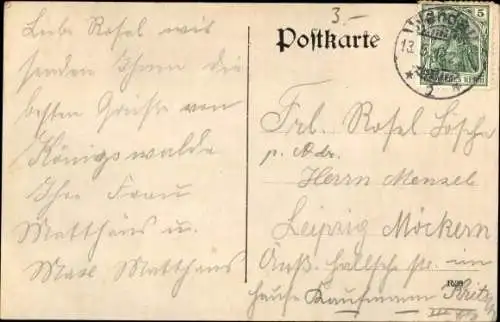 Liebe Rosel wir
senden Ihnen die
besten Grüße von
Königswalde
Ihre Frau
Matthäus u.
Max Matthäus
3.-
Postkarte
5
13. 5.
Frl. Rosel Löscher
p. Adr.
Herrn Mensel
Leipzig Möckern
Äuß. Hallsche Str. im
Hause Kaufmann
III